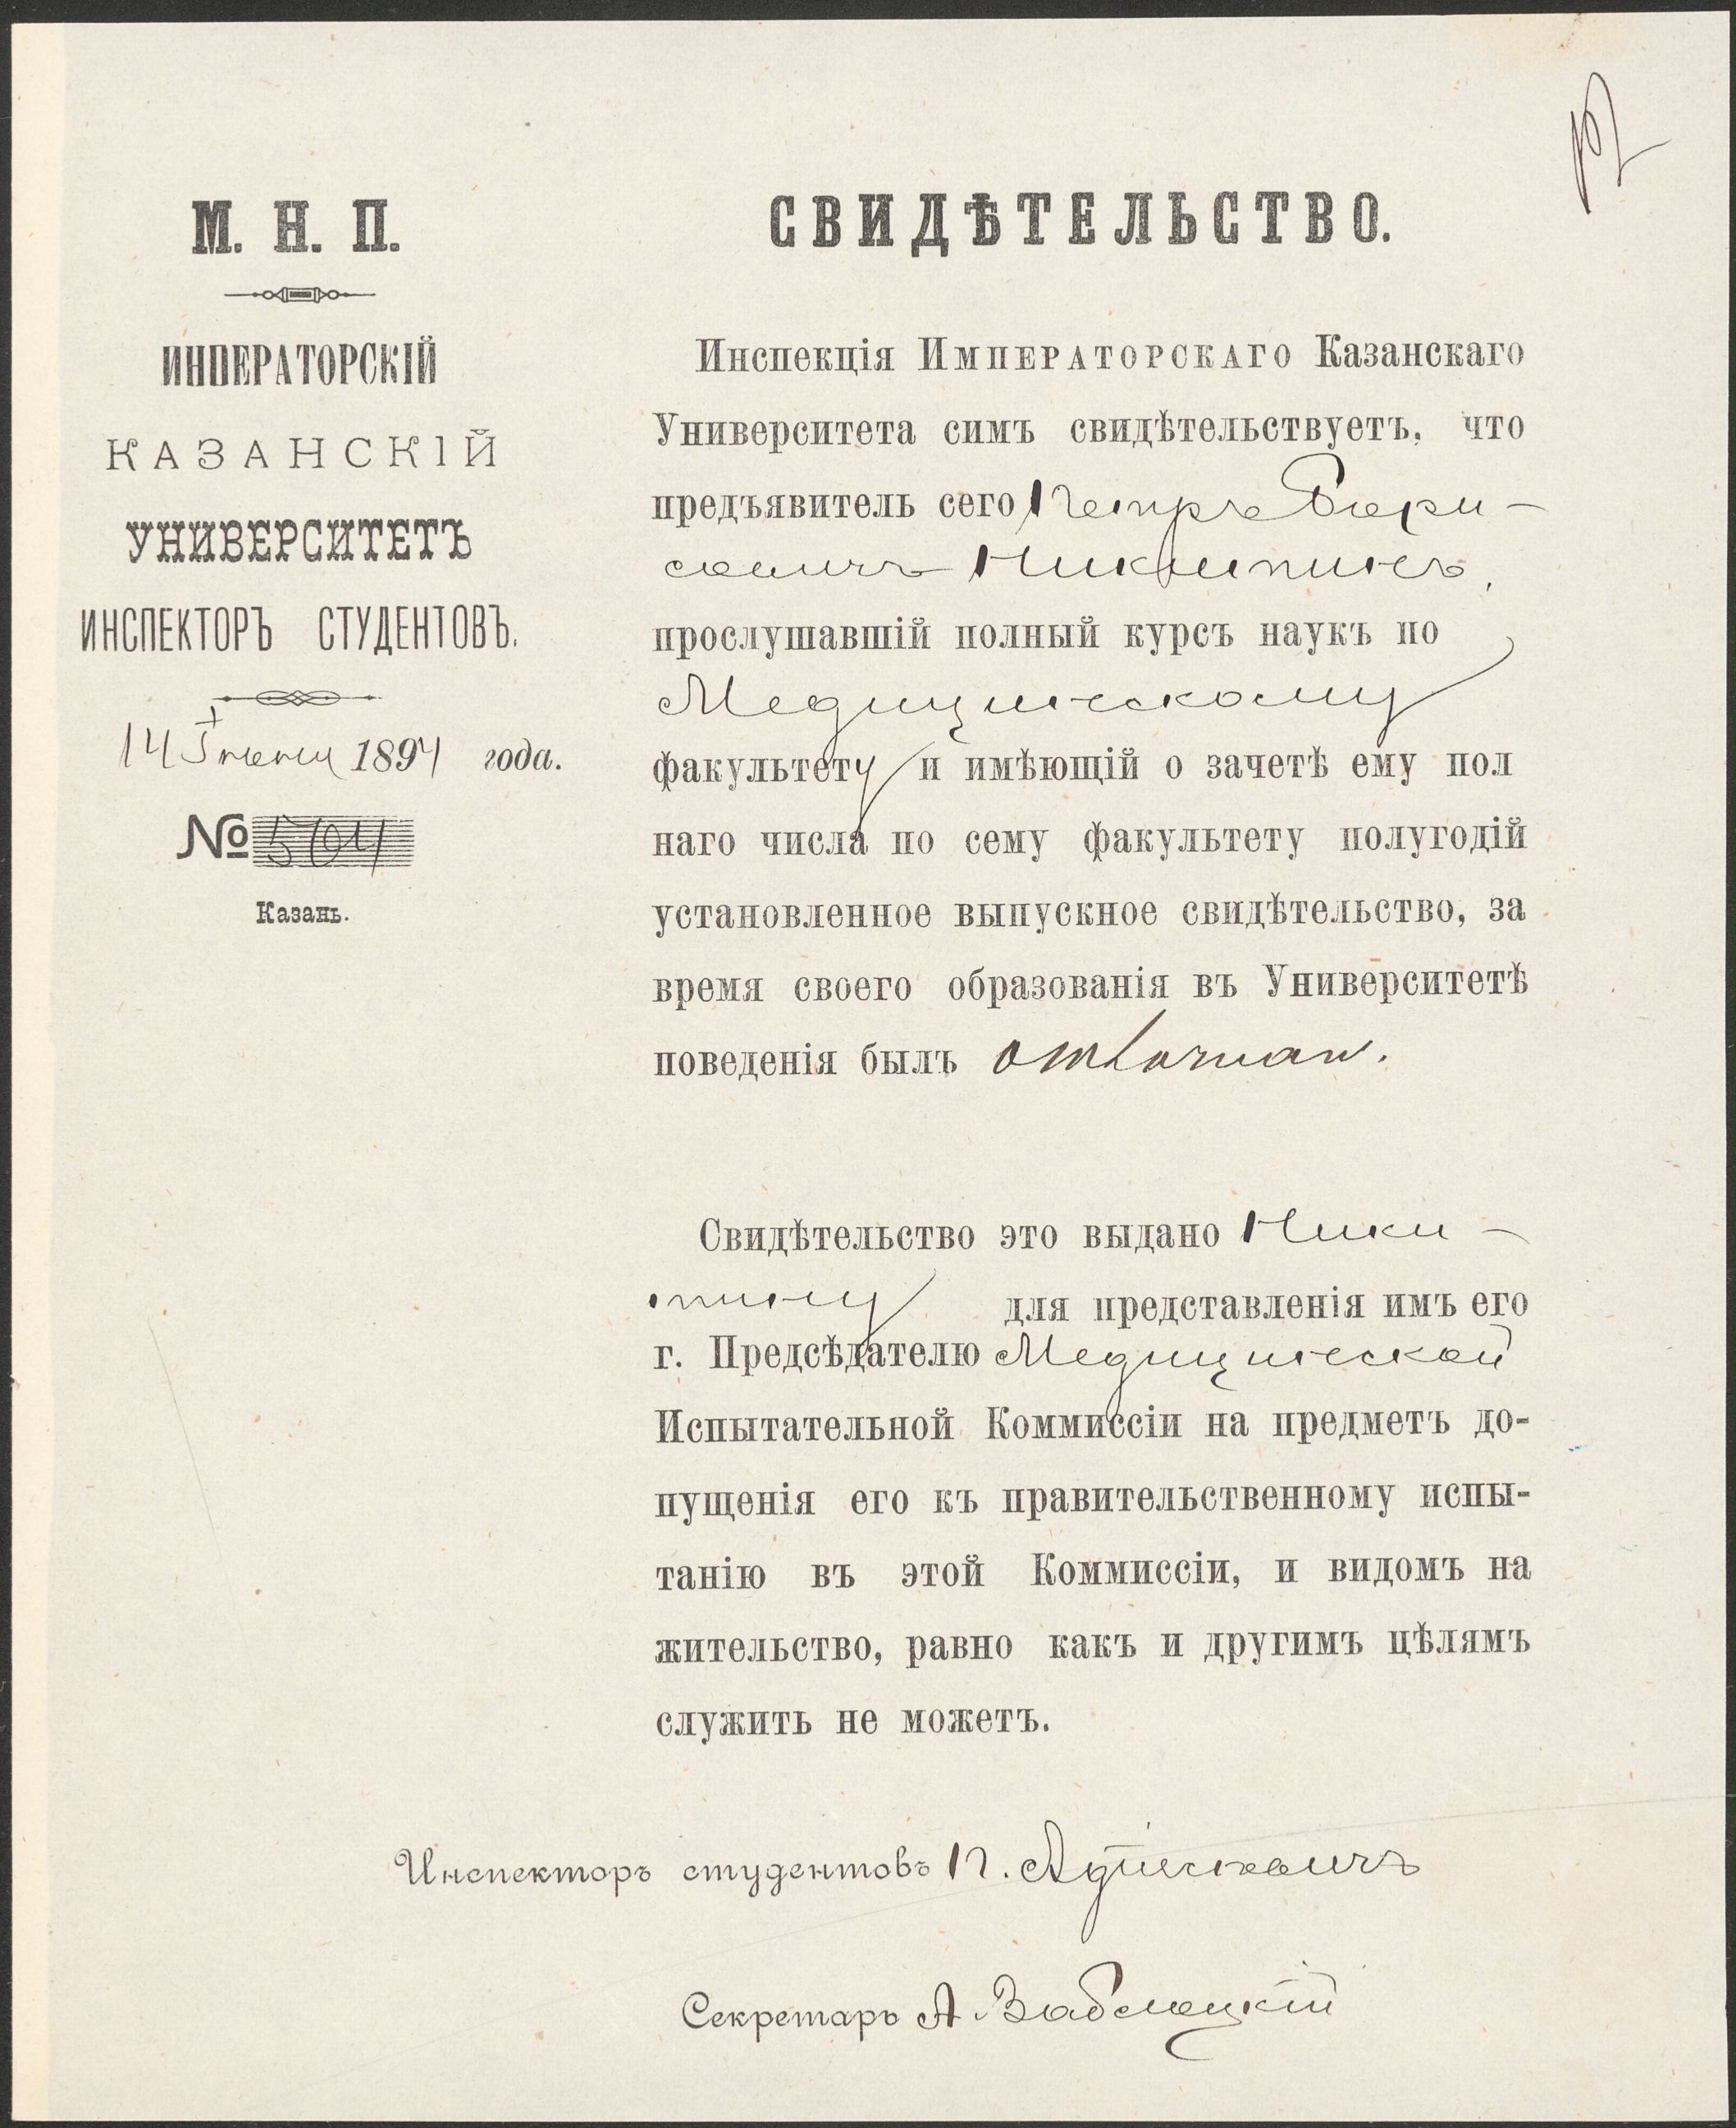 М. Н. П.
ИМПЕРАТОРСКІЙ
КАЗАНСКІЙ
УНИВЕРСИТЕТЪ
ИНСПЕКТОРЪ СТУДЕНТОВЪ.
14 Іюня 1894 года.
№ 504
Казань.
СВИДѢТЕЛЬСТВО.
Инспекція Императорскаго Казанскаго
Университета симъ свидѣтельствуетъ, что
предъявитель сего Петръ Бори-
совичъ Никитинъ,
прослушавшій полный курсъ наукъ по
Медицинскому
факультету и имѣющій о зачетѣ ему пол
наго числа по сему факультету полугодій
установленное выпускное свидѣтельство, за
время своего образованія въ Университетѣ
поведенія былъ отличнаго.
Свидѣтельство это выдано Ники-
тину для представленія имъ его
г. Предсѣдателю Медицинской
Испытательной Коммиссіи на предметъ до-
пущенія его къ правительственному испы-
танію въ этой Коммиссіи, и видомъ на
жительство, равно какъ и другимъ цѣлямъ
служить не можетъ.
Инспекторъ студентовъ П.
Секретарь А.